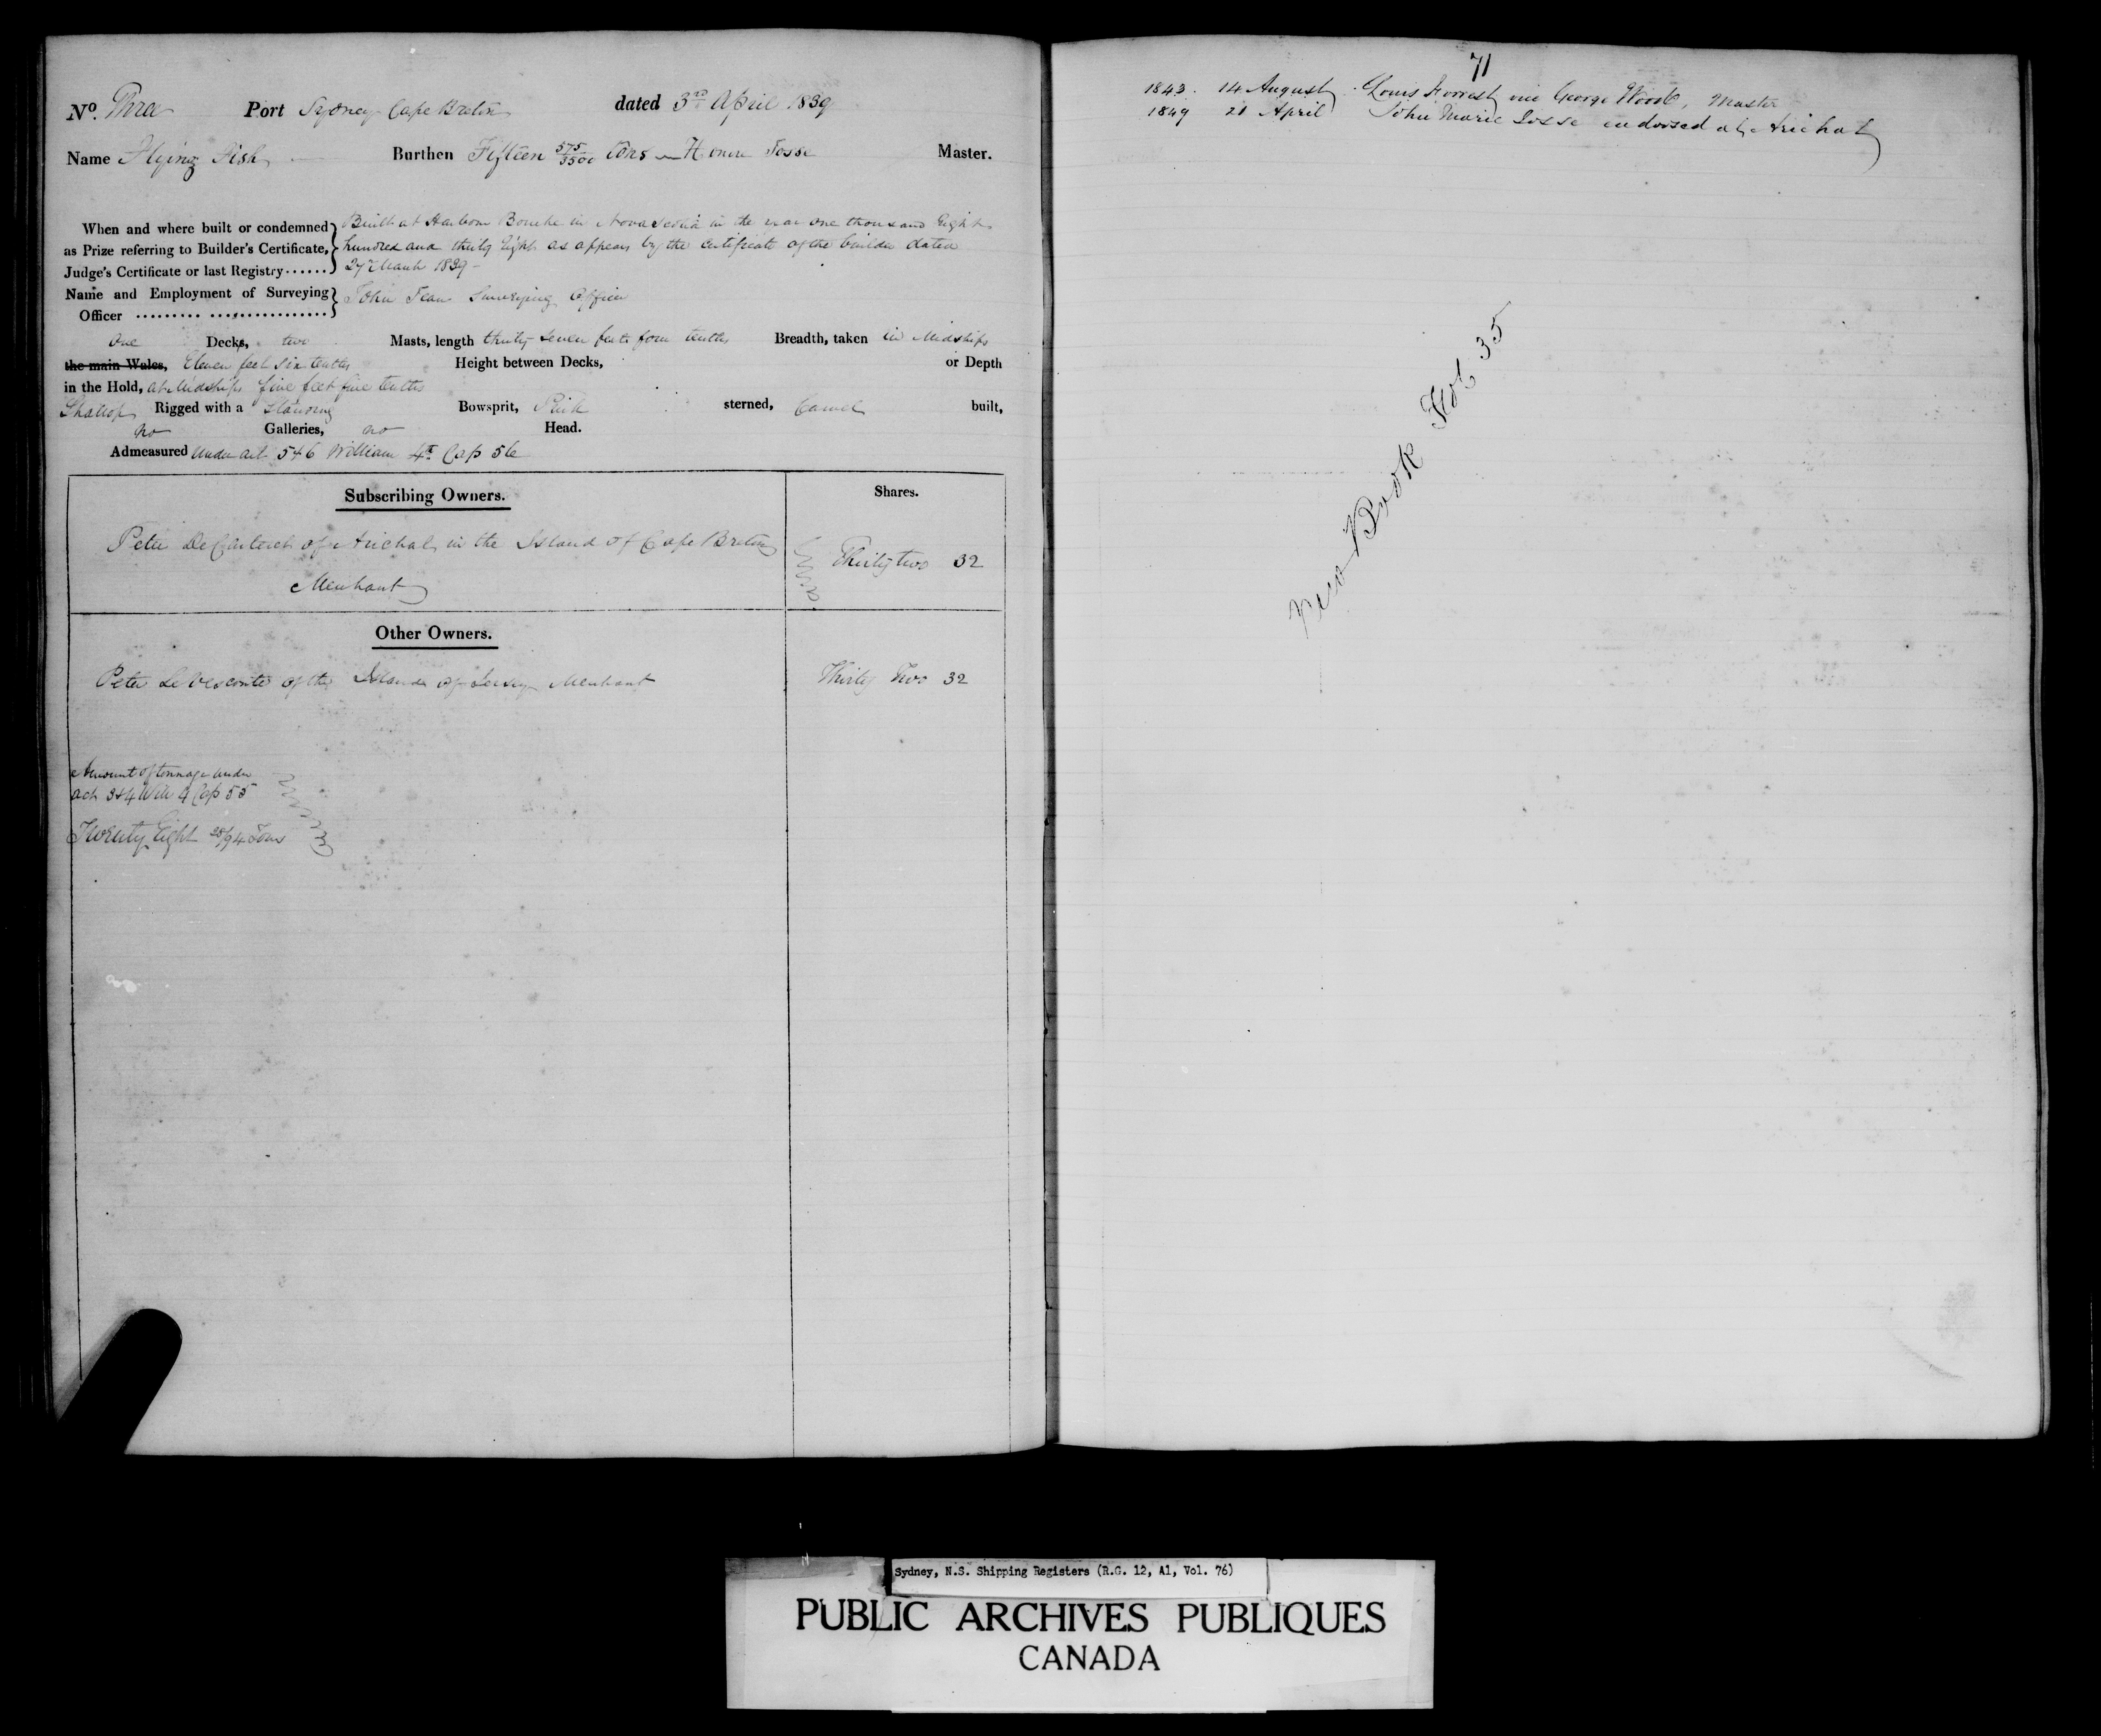 No. Three Port Sydney Cape Breton dated 3rd April 1839
Name Flying Fish Burthen Fifteen 575/3500 Tons Honore Josse Master.
When and where built or condemned as Prize referring to Builder's Certificate, Judge's Certificate or last Registry......} Built at Harbour Bouche in Nova Scotia in the year one thousand Eight
hundred and thirty Eight as appears by the Certificate of the builder dated
27 March 1839 -
Name and Employment of Surveying Officer ......... ................} John Jean Surveying Officer
One Decks, two Masts, length thirty seven feet four tenths Breadth, taken in Midships
the main Wales, Eleven feet Six tenths Height between Decks, or Depth
in the Hold, at Midships five feet five tenths
Shallop Rigged with a Standing Bowsprit, Pink sterned, Carvel built,
no Galleries, no Head.
Admeasured under act 5 & 6 William 4th Cap 56
Subscribing Owners. Shares.
Peter De Carteret of Arichat in the Island of Cape Breton
Merchant Thirty two 32
Other Owners.
Peter Le Vesconte of the Island of Jersey Merchant Thirty Two 32
Amount of tonnage under
act 3 & 4 Will 4 Cap 55
Twenty Eight 28/94 Tons
71
1843. 14 August Louis Forrest vice George Wood, Master
1849 21 April John Marie Josse endorsed at Arichat
New Book Fol 35
Sydney, N.S. Shipping Registers (R.G. 12, A1, Vol. 76)
PUBLIC ARCHIVES PUBLIQUES
CANADA